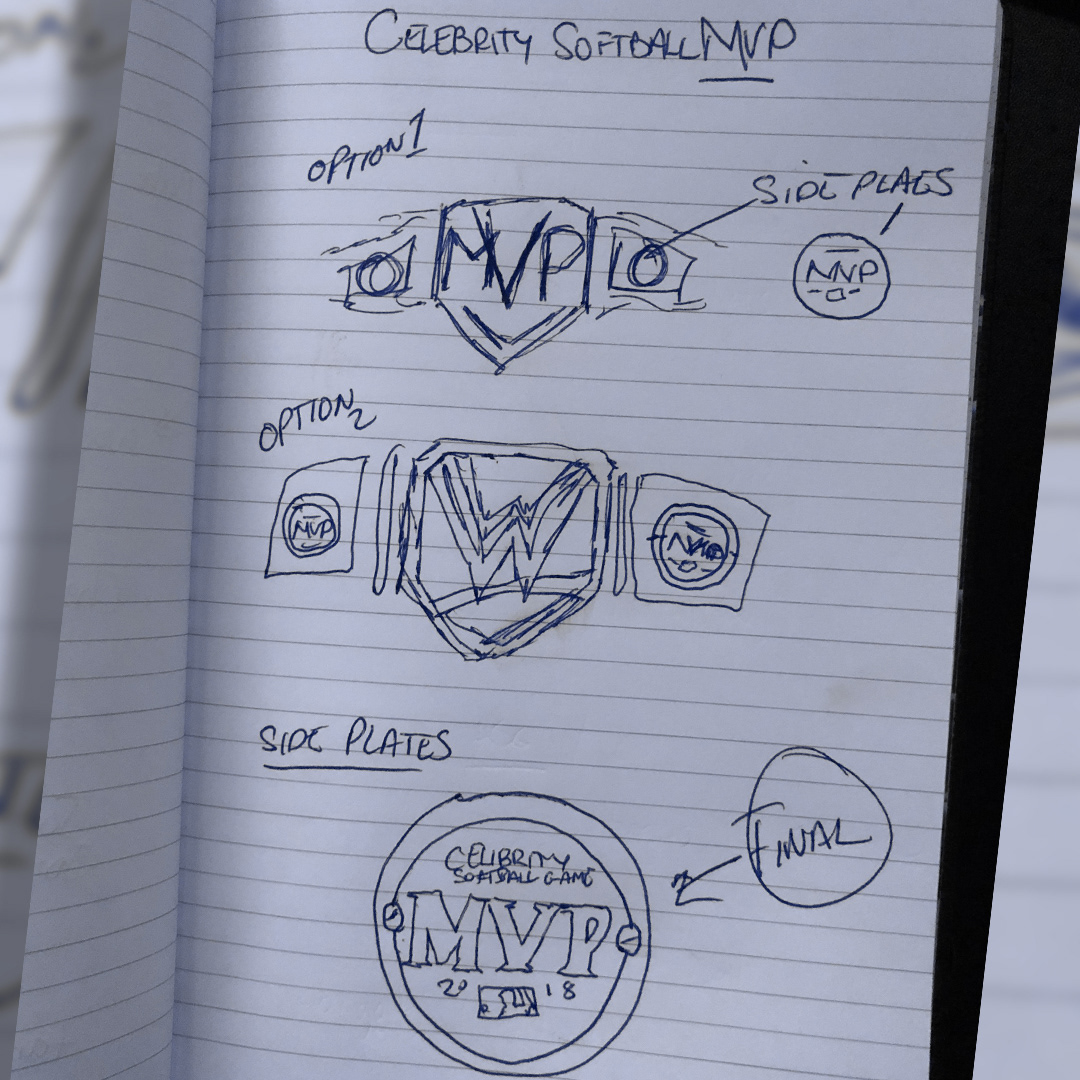 CELEBRITY SOFTBALL MVP
OPTION 1
SIDE PLAES
MVP
MVP
OPTION 2
W
MVP
MVP
SIDE PLATES
FINAL
CELIBRITY
SOFTBALL GAME
MVP
20 18